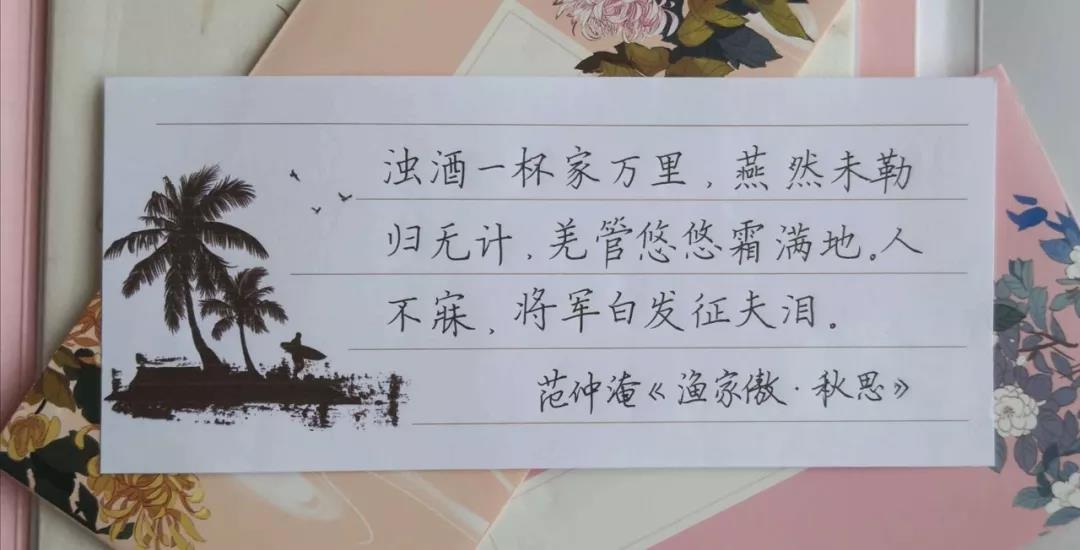 浊酒一杯家万里，燕然未勒
归无计，羌管悠悠霜满地。人
不寐，将军白发征夫泪。
范仲淹《渔家傲·秋思》